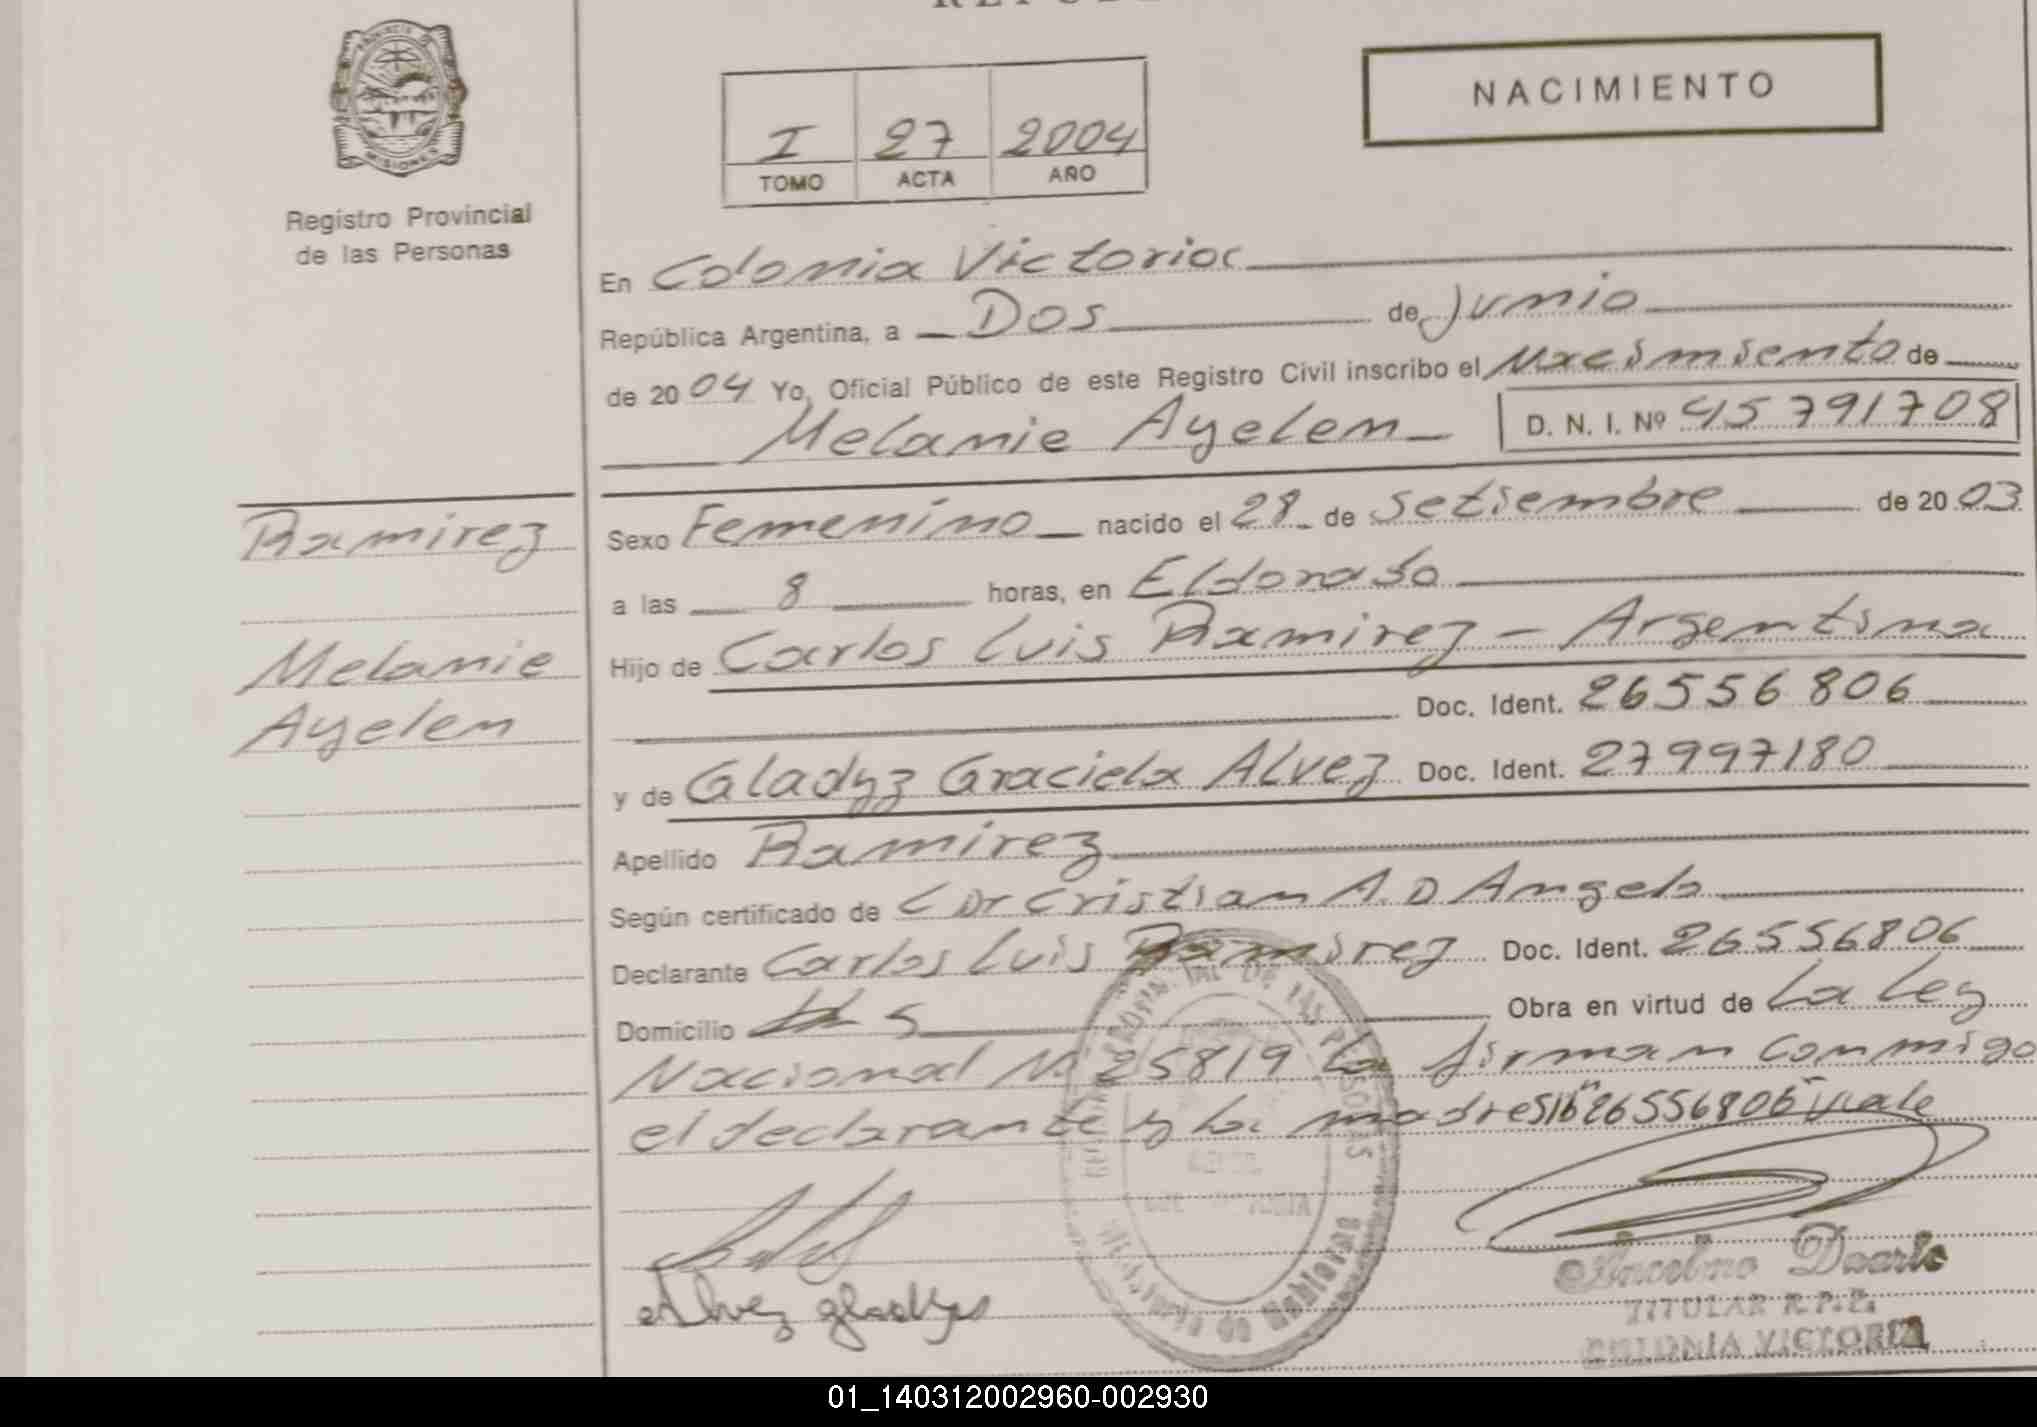 PROVINCIA DE
MISIONES
Registro Provincial
de las Personas
I 27 2004
TOMO ACTA AÑO
NACIMIENTO
En Colonia Victoria
República Argentina, a Dos de Junio
de 2004 Yo, Oficial Público de este Registro Civil inscribo el Nacimiento de
Melanie Ayelen D. N. I. Nº 45791708
Ramirez
Melanie
Ayelen
Sexo Femenino nacido el 28 de Setiembre de 2003
a las 8 horas, en Eldorado
Hijo de Carlos Luis Ramirez - Argentina
Doc. Ident. 26556806
y de Gladyz Graciela Alvez Doc. Ident. 27997180
Apellido Ramirez
Según certificado de Cristian A. D Angelo
Declarante Carlos Luis Ramirez Doc. Ident. 26556806
Domicilio Obra en virtud de La Ley
Nacional Nº 25819 La firman conmigo
el declarante y la madre S/b "26556806" Vale
Alvez gladys
Anselmo Duarte
TITULAR R.P.P.
COLONIA VICTORIA
01_140312002960-002930